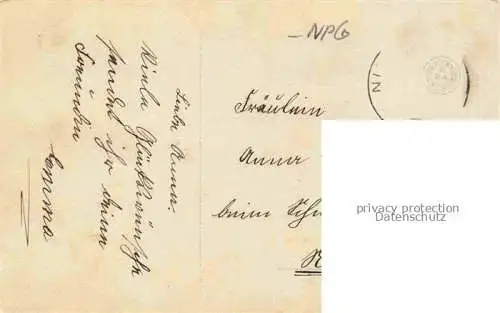 Liebe Anna.
Viele Glückwünsche
sendet dir deine
Freundin
Emma
NPG
Fräulein
Anna
beim
privacy protection
Datenschutz